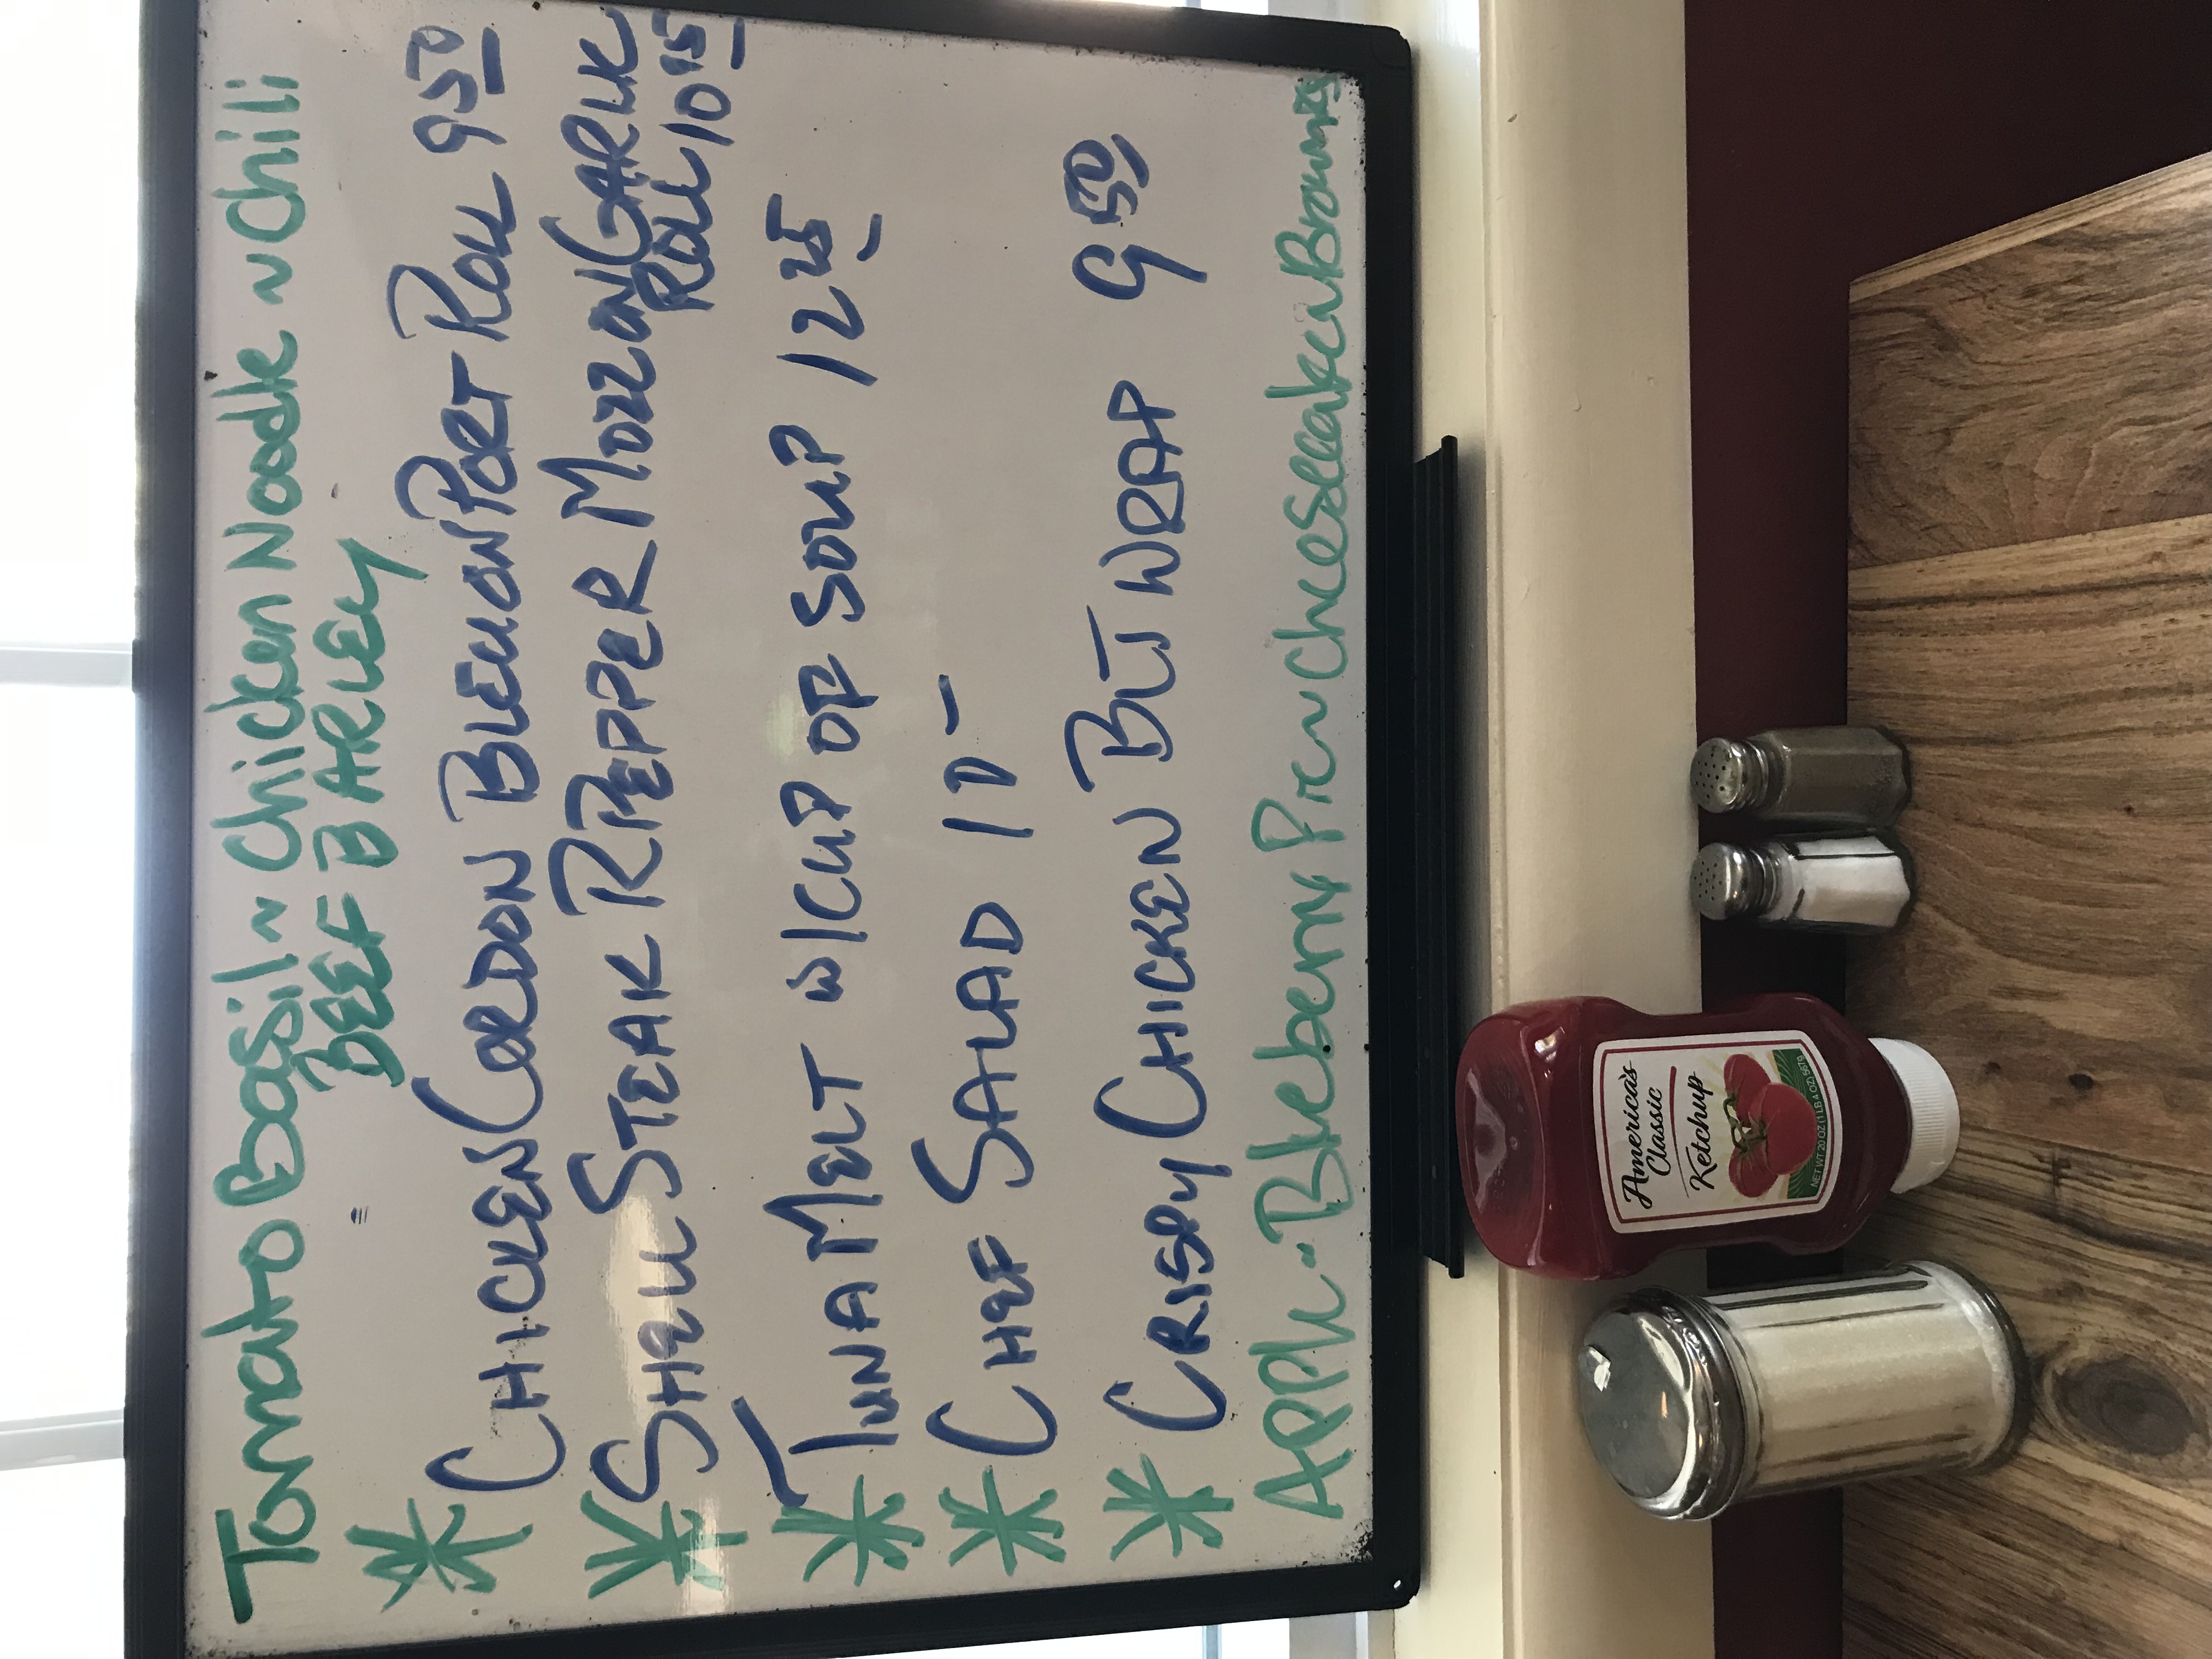 Tomato Basil ~ Chicken Noodle ~ Chili
BEEF BARLEY
* CHICKEN CORDON BLEU ON PORT ROLL 9 50
* SHELL STEAK PEPPER MOZZ ON GARLIC
ROLL 10
* TUNA MELT W/CUP OF SOUP 12 25
* CHEF SALAD 10 -
* CRISPY CHICKEN BLT WRAP 9 50
APPle · Blueberry Pie ~ Cheesecake ~ Brownies
America's
Classic
Ketchup
NET WT 20 OZ (1 LB 4 OZ) 567g